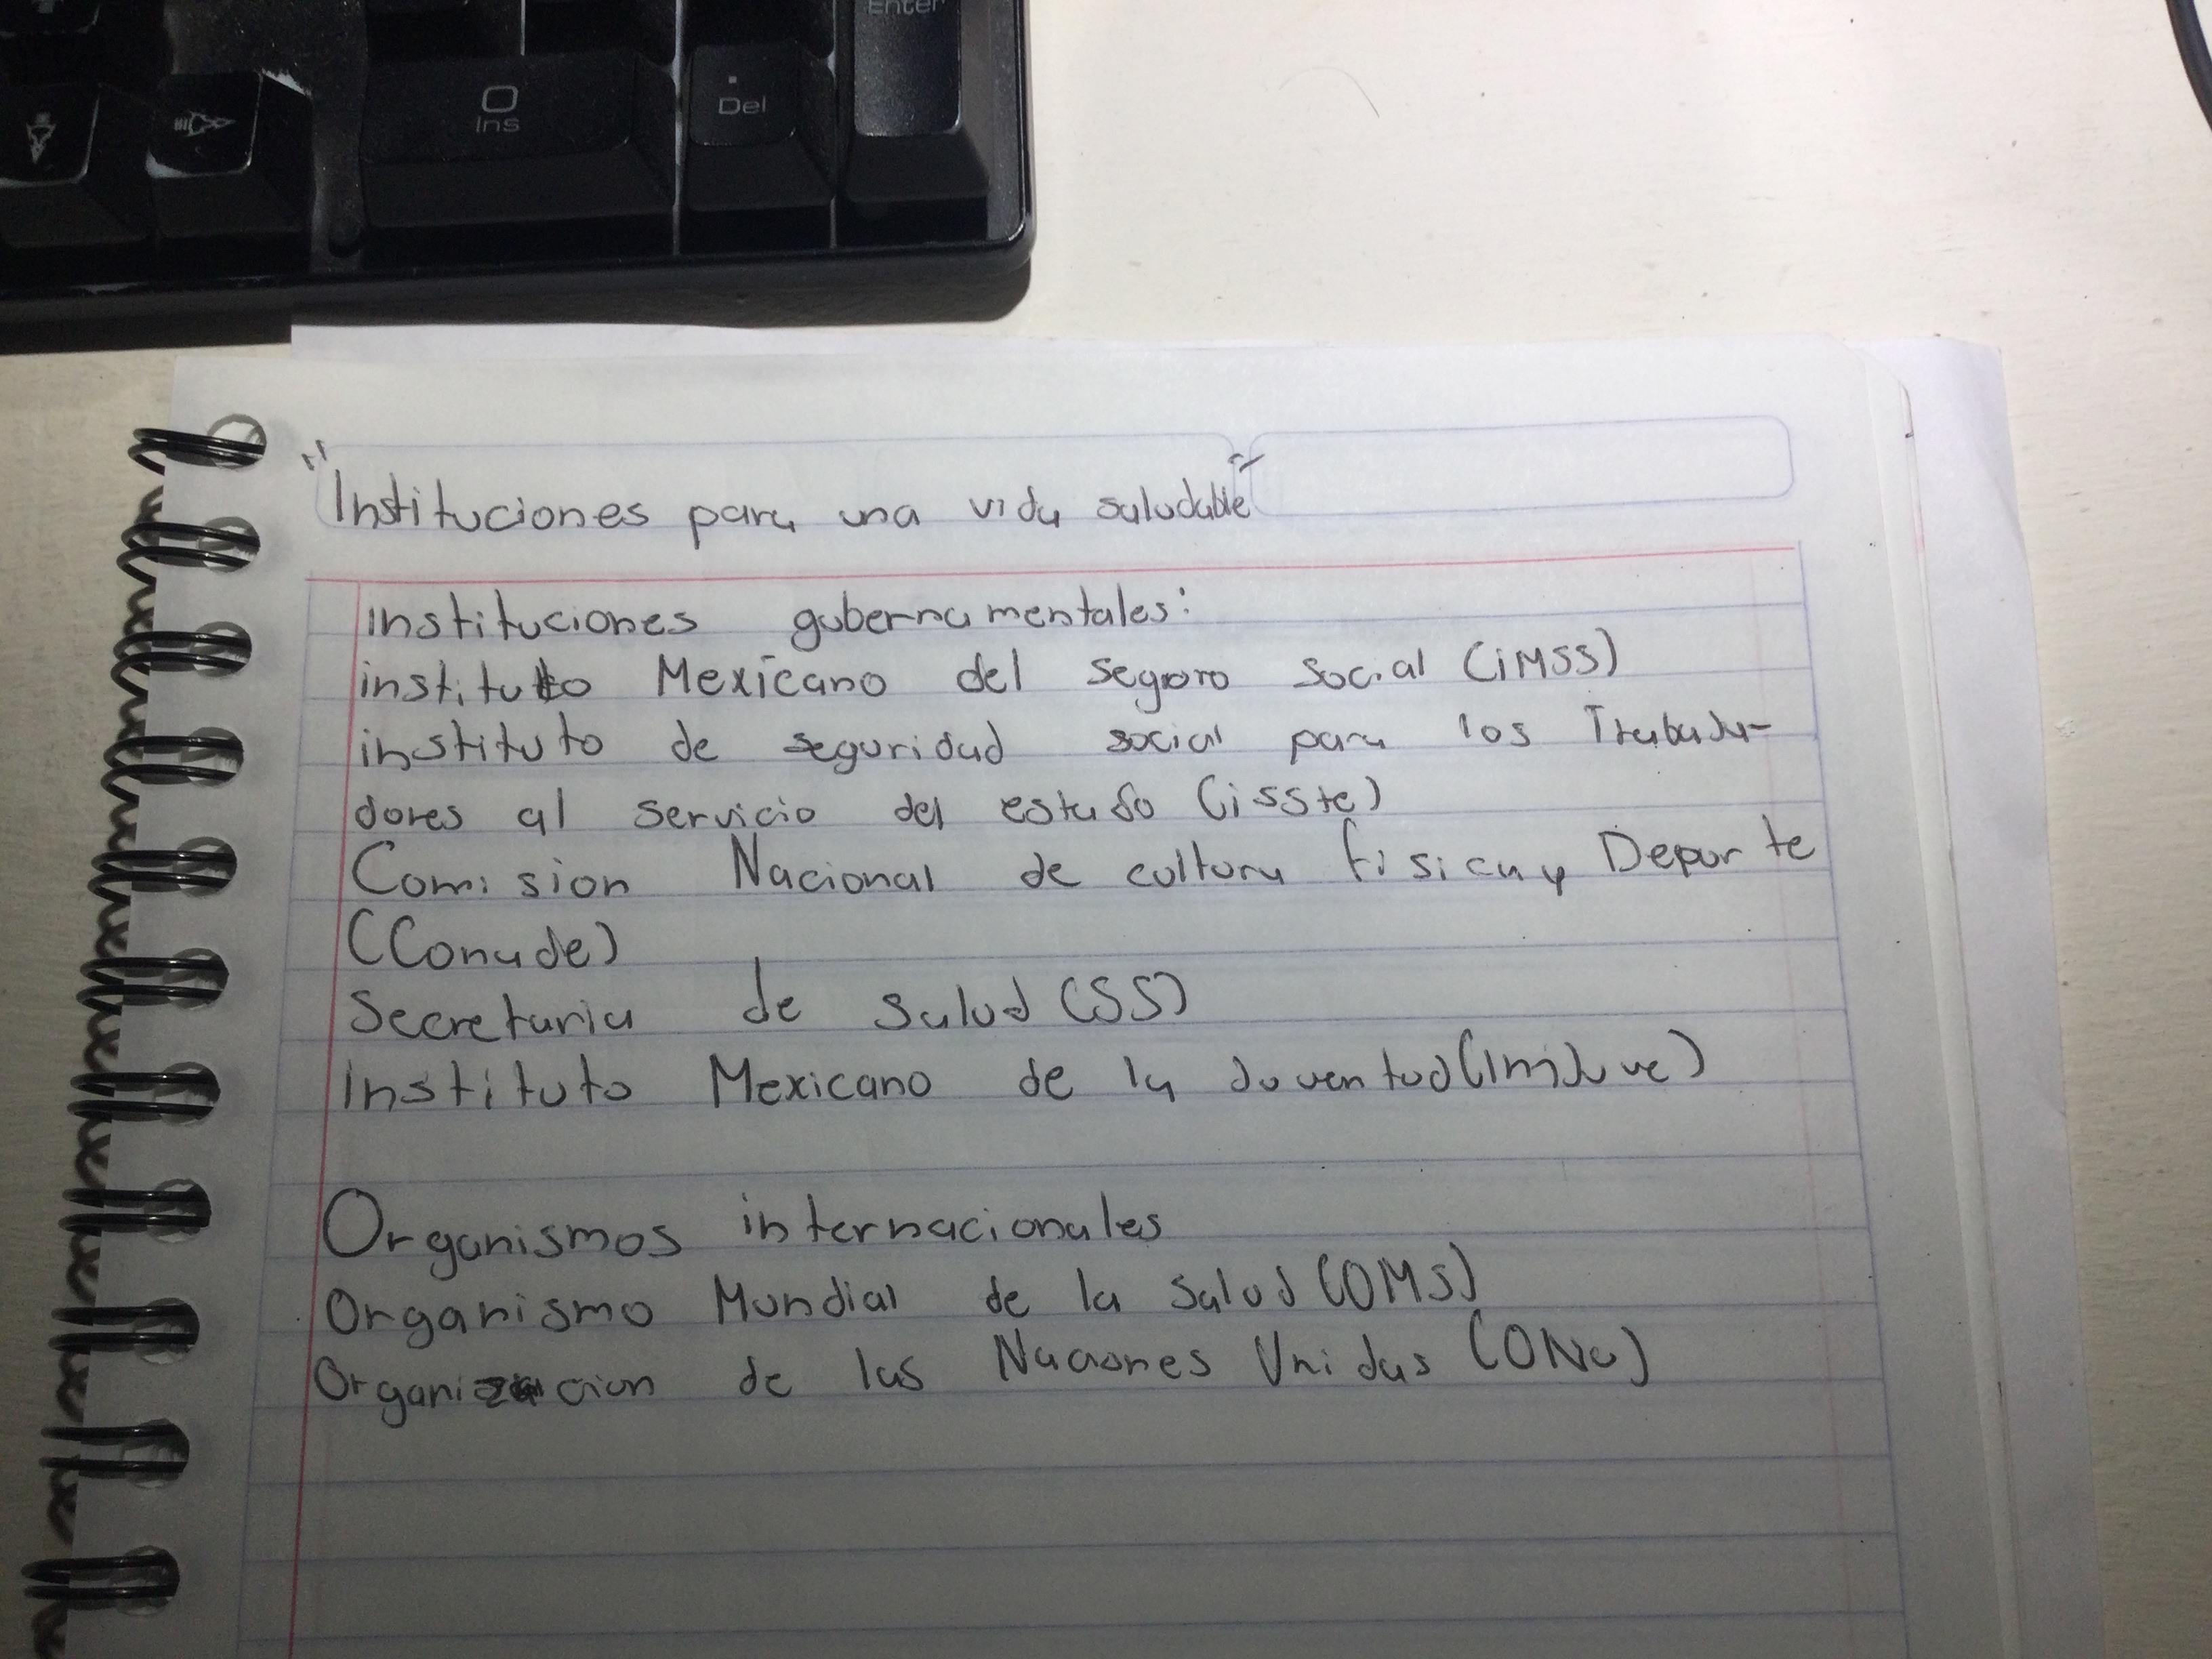 Enter
0
Ins
.
Del
"Instituciones para una vida saludable"
instituciones gubernamentales:
instituto Mexicano del seguro social (iMSS)
instituto de seguridad social para los Trabaja-
dores al servicio del estado (isste)
Comision Nacional de cultura fisica y Deporte
(Conade)
Secretaria de salud (SS)
Instituto Mexicano de la Juventud (ImJuve)
Organismos internacionales
Organismo Mundial de la Salud (OMS)
Organizacion de las Naciones Unidas (ONU)